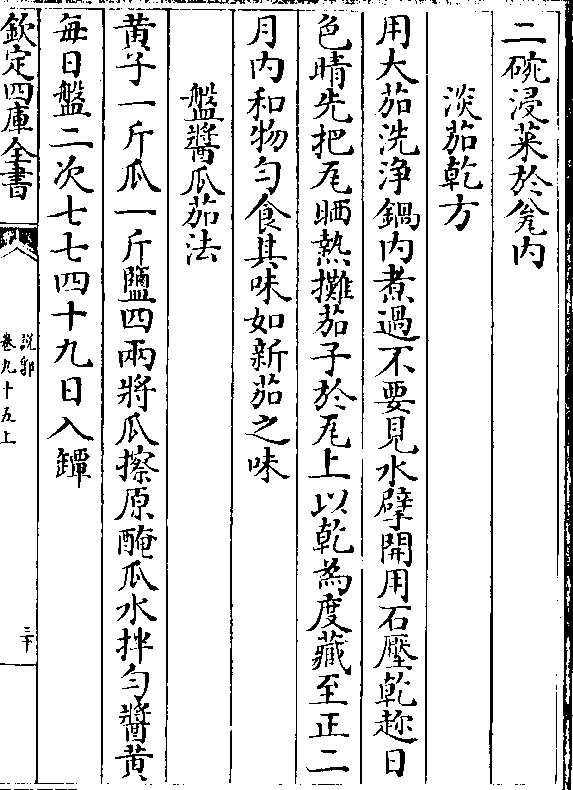 二碗浸菜於瓮内
淡茄乾方
用大茄洗浄鍋内煮過不要見水擘開用石壓乾趂日
色晴先把瓦晒熱攤茄子於瓦上以乾為度藏至正二
月内和物匀食其味如新茄之味
盤醬瓜茄法
黄子一斤瓜一斤鹽四兩將瓜擦原醃瓜水拌匀醬黄
每日盤二次七七四十九日入罈
欽定四庫全書
說郛
卷九十五上
三十